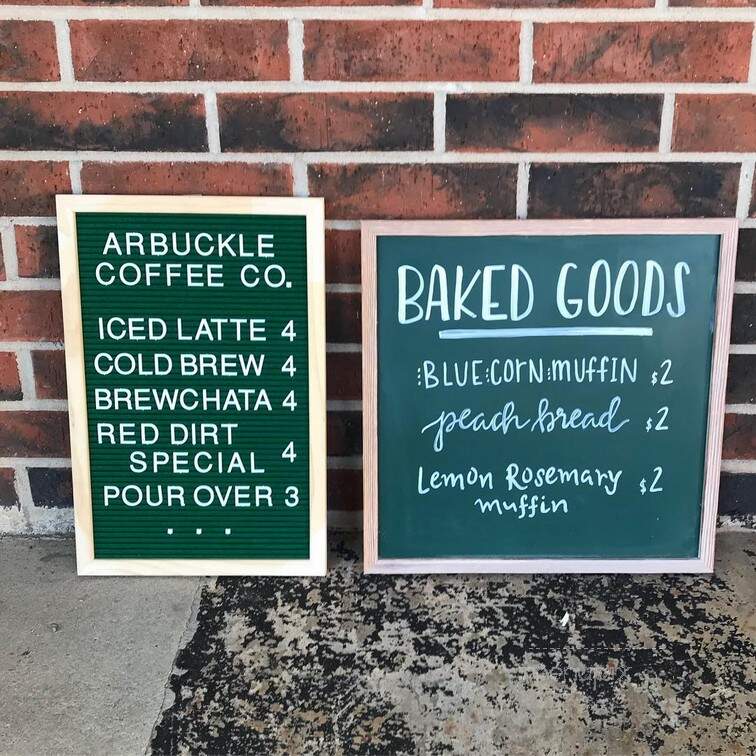 ARBUCKLE
COFFEE CO.
ICED LATTE 4
COLD BREW 4
BREWCHATA 4
RED DIRT
SPECIAL 4
POUR OVER 3
...
BAKED GOODS
BLUE CORN MUFFIN $2
peach bread $2
Lemon Rosemary $2
muffin